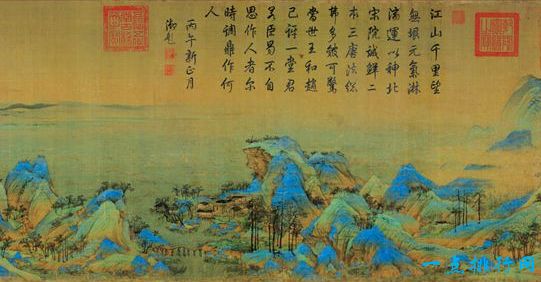 江山千里望
無垠元氣淋
漓運以神北
宋院誠鮮二
本三唐法総
弗多皴可驚
當世王和趙
已訝一堂君
若臣曷不自
思作人者尔
時調鼎作何
人
丙午新正月
御題
一点排行网